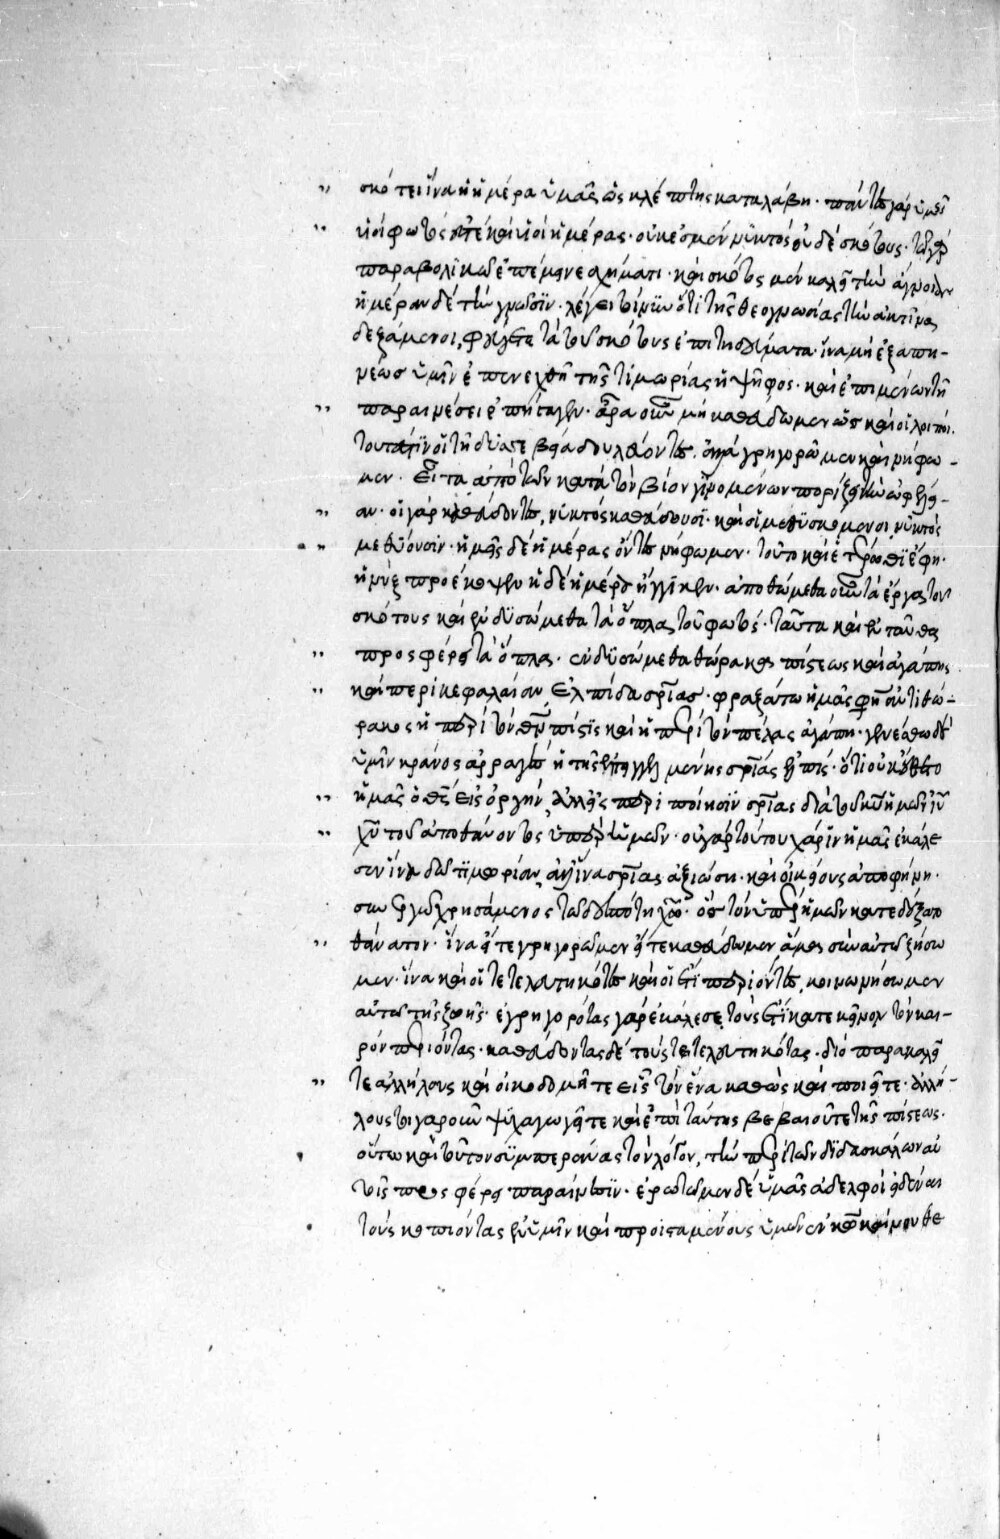 σκότει ἵνα ἡ ἡμέρα ὑμᾶς ὡς κλέπτης καταλάβη · πάντες γὰρ ὑμεῖς
υἱοὶ φωτός ἐστε καὶ υἱοὶ ἡμέρας · οὐκ ἐσμὲν νυκτὸς οὐδὲ σκότους · τῶ
παραβολικῶ ἐπέμεινε σχήματι · καὶ σκότος μὲν καλεῖ τὴν ἄγνοιαν
ἡμέραν δὲ τὴν γνῶσιν · λέγει τοίνυν ὅτι τῆς θεογνωσίας τὴν ἀκτῖνα
δεξάμενοι, φεύγετε τὰ τοῦ σκότους ἐπιτηδεύματα · ἵνα μὴ ἐξαπι-
ναίως ὑμῖν ἐπενεχθῆ τῆς τιμωρίας ἡ ψῆφος · καὶ ἐπιμένων τῆ
παραινέσει ἐπήγαγεν · ἄρα οὖν μὴ καθεύδωμεν ὡς καὶ οἱ λοιποί ·
τουτέστιν οἱ τῆ δυσσεβεία δουλεύοντες, ἀλλὰ γρηγορῶμεν καὶ νήφω-
μεν · εἶτα ἀπὸ τῶν κατὰ τὸν βίον γινομένων πορίζει τὴν ὠφέλει-
αν · οἱ γὰρ καθεύδοντες, νυκτὸς καθεύδουσι · καὶ οἱ μεθυσκόμενοι νυκτὸς
μεθύουσιν · ἡμεῖς δὲ ἡμέρας ὄντες νήφωμεν · τοῦτο καὶ ἑτέρωθι ἔφη ·
ἡ νὺξ προέκοψεν ἡ δὲ ἡμέρα ἤγγικεν · ἀποθώμεθα οὖν τὰ ἔργα τοῦ
σκότους καὶ ἐνδυσώμεθα τὰ ὅπλα τοῦ φωτός · ταῦτα καὶ ἐνταῦθα
προσφέρει τὰ ὅπλα · ἐνδυσώμεθα θώρακα πίστεως καὶ ἀγάπης
καὶ περικεφαλαίαν ἐλπίδα σρίας · φραξάτω ἡμᾶς φησὶν ἀντὶ θώ-
ρακος ἡ περὶ τὸν θν πίστις καὶ ἡ περὶ τὸν πέλας ἀγάπη · γενέσθω δὲ
ὑμῖν κράνος ἀρραγὲς ἡ τῆς ἐπηγγελμένης σρίας ἐλπίς · ὅτι οὐκ ἔθετο
ἡμᾶς ὁ θς εἰς ὀργὴν, ἀλλ' εἰς περιποίησιν σρίας διὰ τοῦ κυ ἡμῶν ιυ
χυ τοῦ ἀποθανόντος ὑπὲρ ἡμῶν · οὐ γὰρ τούτου χάριν ἡμᾶς ἐκάλε
σεν ἵνα δῶ τιμωρίαν, ἀλλ' ἵνα σρίας ἀξιώση · καὶ οἰκείους ἀποφήνη ·
θάνατον · ἵνα εἴτε γρηγορῶμεν εἴτε καθεύδωμεν, ἅμα σὺν αὐτῶ ζήσω
μεν · ἵνα καὶ οἱ τετελευτηκότες καὶ οἱ ἔτι περιόντες, κοινωνήσωμεν
αὐτῶ τῆς ζωῆς · ἐγρηγορότας γὰρ ἐκάλεσε τοὺς ἔτι κατ' ἐκεῖνον τὸν και-
ρὸν περιόντας · καθεύδοντας δὲ τοὺς τετελευτηκότας · διὸ παρακαλεῖ
τε ἀλλήλους καὶ οἰκοδομεῖτε εἷς τὸν ἕνα καθὼς καὶ ποιεῖτε · ἀλλή-
λους τοιγαροῦν ψυχαγωγεῖτε καὶ ἐπὶ ταύτης βεβαιοῦτε τῆς πίστεως ·
οὕτω καὶ τοῦτον συμπεράνας τὸν λόγον, τὴν περὶ τῶν διδασκάλων αὐ
τοῖς προσφέρει παραίνεσιν · ἐρωτῶμεν δὲ ὑμᾶς ἀδελφοὶ εἰδέναι
τοὺς κοπιόντας ἐν ὑμῖν καὶ προϊσταμένους ὑμῶν ἐν κω καὶ νουθε